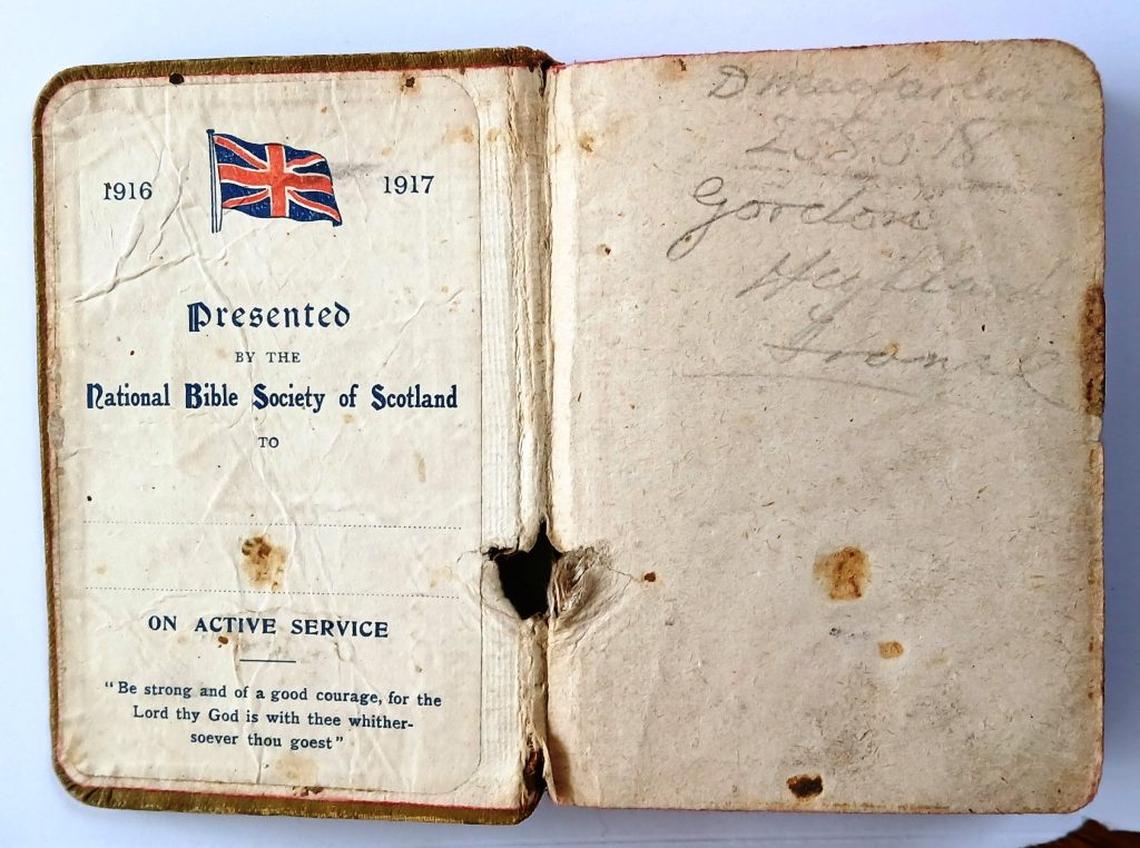 1916
1917
Presented
BY THE
National Bible Society of Scotland
TO
ON ACTIVE SERVICE
"Be strong and of a good courage, for the
Lord thy God is with thee whither-
soever thou goest"
D Macfarlane
Gordon
France